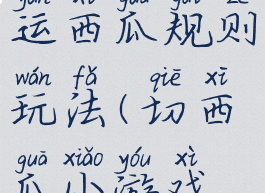 yùn xī guā guī zé
运西瓜规则
wán fǎ qiē xī
玩法(切西
guā xiǎo yóu xì
瓜小游戏